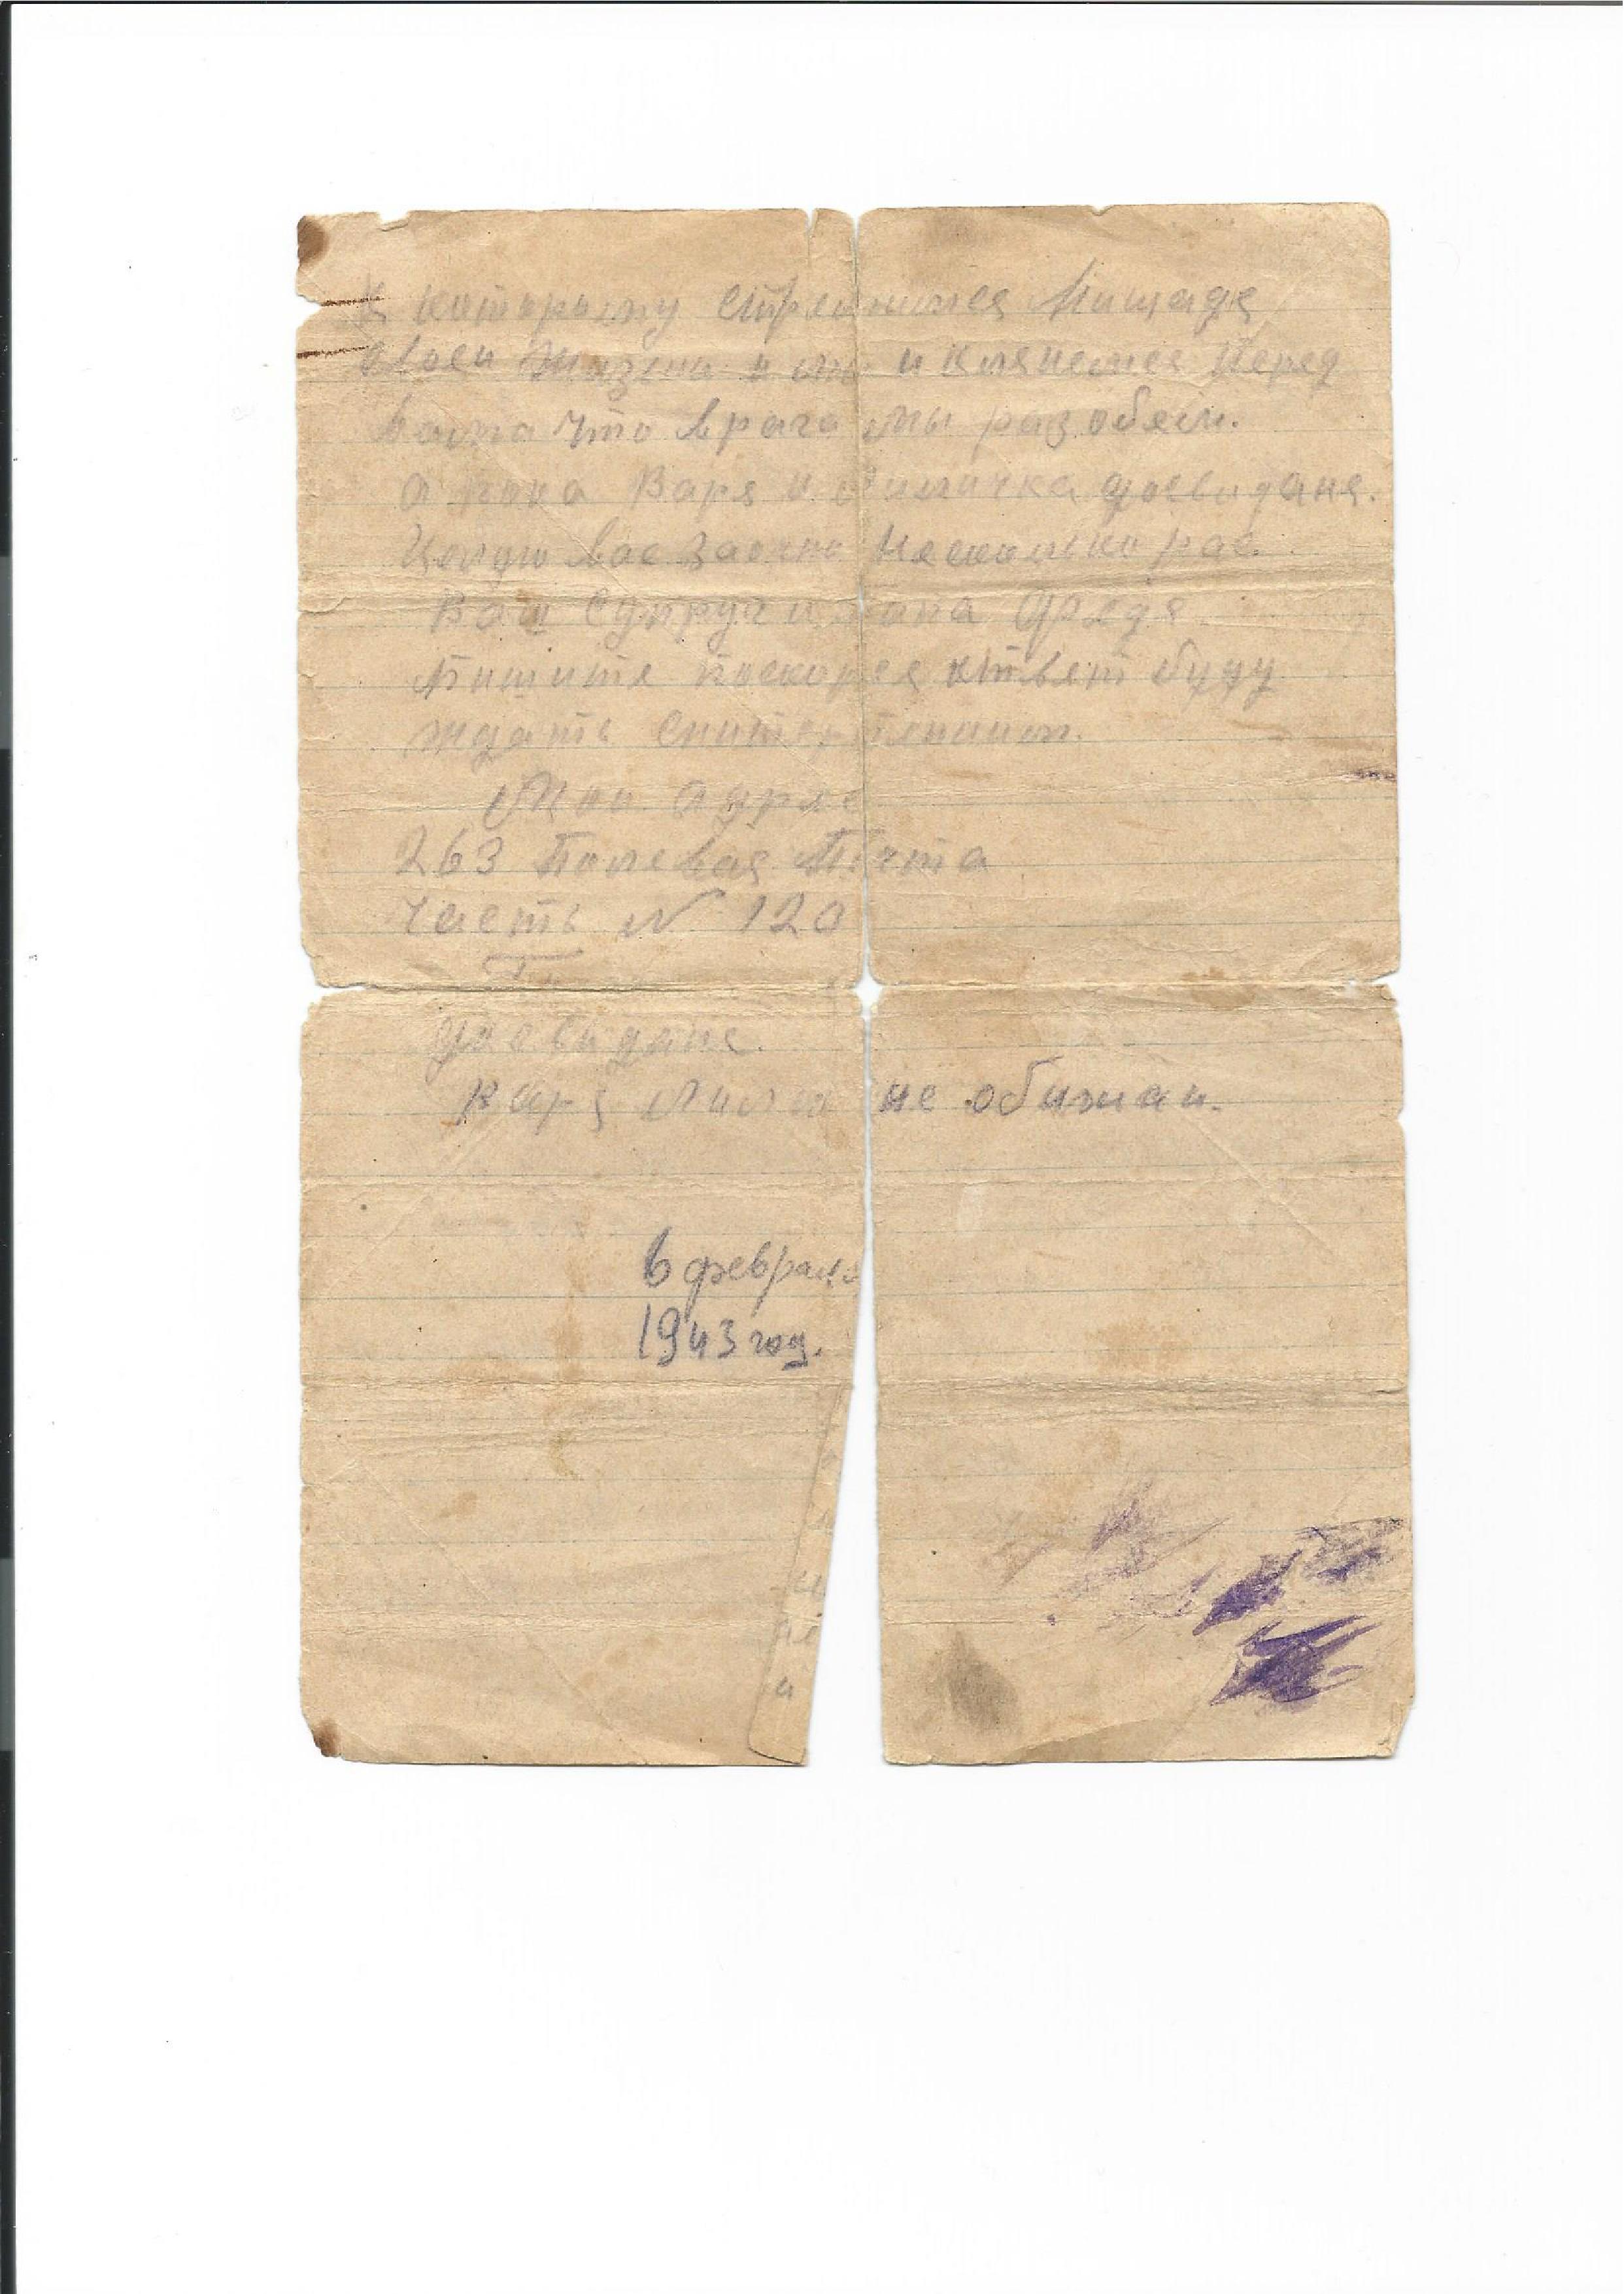 к которому стремимся нищадя
своей жизни и мы и клянемся перед
вами что врага мы разобем.
а пока Варя и Лиличка досвидане.
Целую вас заочно несколько рас.
Ваш супруг и папа Федя
Пишите поскорея ответ буду
ждать снитерпением.
Мой адрес
263 Полевая Почта
часть № 120
досвидане.
Варя Лилю не обижай.
6 февраля
1943 год.